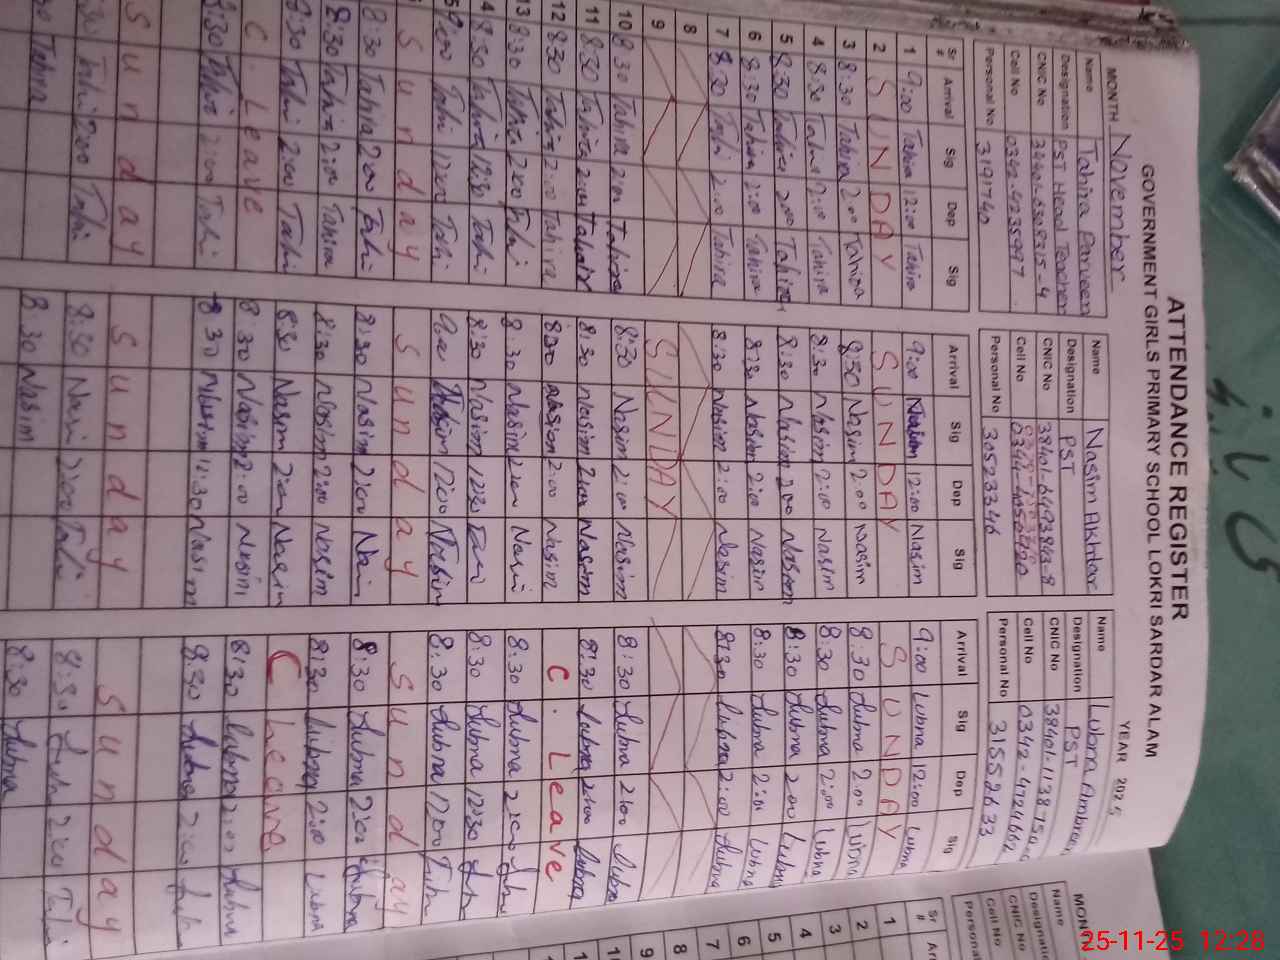 ATTENDANCE REGISTER
GOVERNMENT GIRLS PRIMARY SCHOOL LOKRI SARDAR ALAM
MONTH November YEAR 2025
Name Tahira Parveen Name Nasim Akhtar Name Lubna Ambreen
Designation PST Head Teacher Designation PST Designation PST
CNIC No CNIC No 38401-6493843-8 CNIC No
Cell No 0342-4235997 Cell No Cell No
Personal No 3191740 Personal No 30523346 Personal No 31552633
Sr # Arrival Sig Dep Sig Arrival Sig Dep Sig Arrival Sig Dep Sig
1 9:00 Tahira 12:00 Tahira 9:00 Nasim 12:00 Nasim 9:00 Lubna 12:00 Lubna
2 SUNDAY SUNDAY SUNDAY
3 8:30 Tahira 2:00 Tahira 8:30 Nasim 2:00 Nasim 8:30 Lubna 2:00 Lubna
4 8:30 Tahira 2:00 Tahira 8:30 Nasim 2:00 Nasim 8:30 Lubna 2:00 Lubna
5 8:30 Tahira 2:00 Tahira 8:30 Nasim 2:00 Nasim 8:30 Lubna 2:00 Lubna
6 8:30 Tahira 2:00 Tahira 8:30 Nasim 2:00 Nasim 8:30 Lubna 2:00 Lubna
7 8:30 Tahi 2:00 Tahira 8:30 Nasim 2:00 Nasim 8:30 Lubna 2:00 Lubna
8
9 SUNDAY
10 8:30 Tahira 2:00 Tahira 8:30 Nasim 2:00 Nasim 8:30 Lubna 2:00 Lubna
11 8:30 Tahira 2:00 Tahira 8:30 Nasim 2:00 Nasim 8:30 Lubna 2:00 Lubna
12 8:30 Tahira 2:00 Tahira 8:30 Nasim 2:00 Nasim C. Leave
13 8:30 Tahira 2:00 Tahi 8:30 Nasim 2:00 Nasim 8:30 Lubna 2:00
4 8:30 Tahira 12:30 Tahi 8:30 Nasim 12:30 8:30 Lubna 12:30
5 9:00 Tahi 12:00 Tahi 9:00 Nasim 12:00 Nasim 8:30 Lubna 12:00
Sunday Sunday Sunday
8:30 Tahira 2:00 Tahi 8:30 Nasim 2:00 8:30 Lubna 2:00 Lubna
8:30 Tahira 2:00 Tahira 8:30 Nasim 2:00 Nasim 8:30 Lubna 2:00 Lubna
8:30 Tahi 2:00 Tahi 8:30 Nasim 2:00 Nasim C Leave
C. Leave 8:30 Nasim 2:00 Nasim 8:30 Lubna 2:00 Lubna
8:30 Tahira 2:00 Tahi 8:30 Nasim 12:30 Nasim 8:30 Lubna 2:00
Sunday Sunday Sunday
Tahi 2:00 Tahi 8:30 2:00 8:30 2:00
Tahira 8:30 Nasim 8:30 Lubna
MON
Name
Designatio
CNIC No
Cell No
Personal
Sr # Ar
1
2
3
4
5
6
7
8
9
25-11-25 12:28